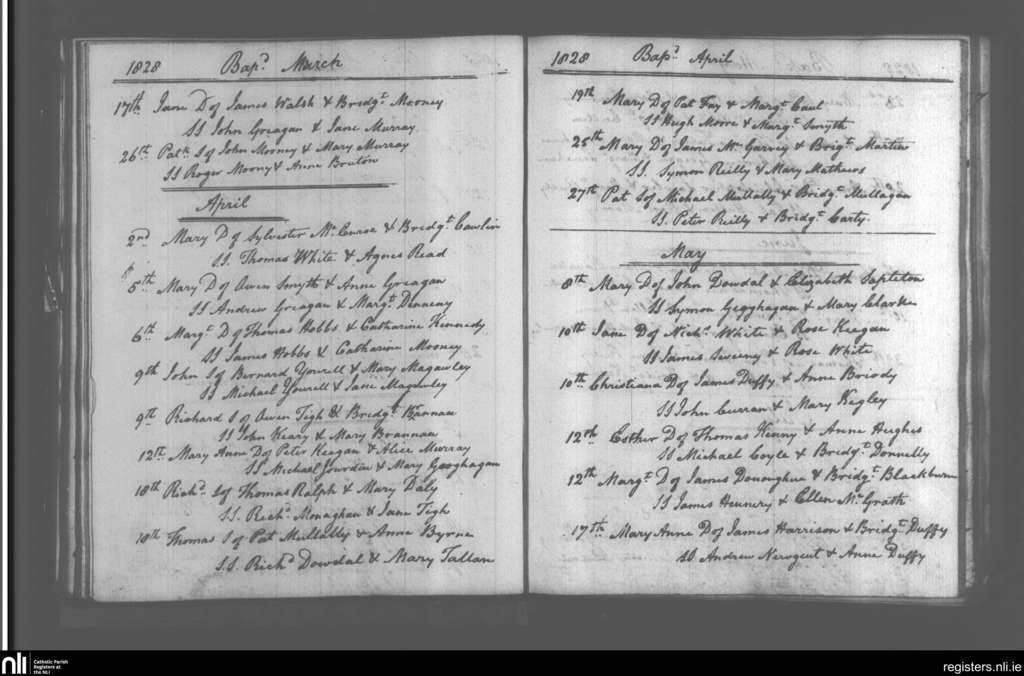 1828 Bapd. March
17th Jane D of James Walsh & Bridgt. Mooney
SS John Greagan & Jane Murray
26th Patk. S of John Mooney & Mary Murray
SS Roger Mooney & Anne Bruton
April
2nd Mary D of Sylvester Mc Enroe & Bridgt. Cawlin
SS. Thomas White & Agnes Read
5th Mary D of Owen Smyth & Anne Greagan
SS Andrew Greagan & Margt. Denneny
6th Margt. D of Thomas Hobbs & Catharine Kennedy
SS James Hobbs & Catharine Mooney
9th John S of Bernard Yourell & Mary Magawley
SS Michael Yourell & Jane Magawley
9th Richard S of Owen Tigh & Bridgt. Brannan
SS John Keary & Mary Brannan
12th Mary Anne D of Peter Keegan & Alice Murray
SS Michael Jourdin & Mary Geoghagan
18th Richd. S of Thomas Ralph & Mary Daly
SS. Richd. Monaghan & Jane Tigh
18th Thomas S of Pat Mullally & Anne Byrne
SS. Richd. Dowdal & Mary Tallan
1828 Bapd. April
19th Mary D of Pat Fay & Margt. Caul
SS Hugh Moore & Margt. Smyth
25th Mary D of James Mc Garvey & Brigt. Martin
SS. Symon Reilly & Mary Mathews
27th Pat S of Michael Mullally & Bridgt. Mullagan
SS. Peter Reilly & Bridgt. Carty.
May
8th Mary D of John Dowdal & Elizabeth Sapleton
SS Symon Geoghagan & Mary Clarke
10th Jane D of Nichs. White & Rose Keegan
SS James Sweeny & Rose White
10th Christiana D of James Duffy & Anne Briody
SS John Curran & Mary Kegley
12th Esther D of Thomas Kenny & Anne Hughes
SS Michael Coyle & Bridgt. Donnelly
12th Margt. D of James Donoughue & Bridgt. Blackburn
SS James Hennery & Ellen Mc Grath
17th Mary Anne D of James Harrison & Bridgt. Duffy
SS Andrew Nervgent & Anne Duffy
nli Catholic Parish
Registers at
the NLI
registers.nli.ie